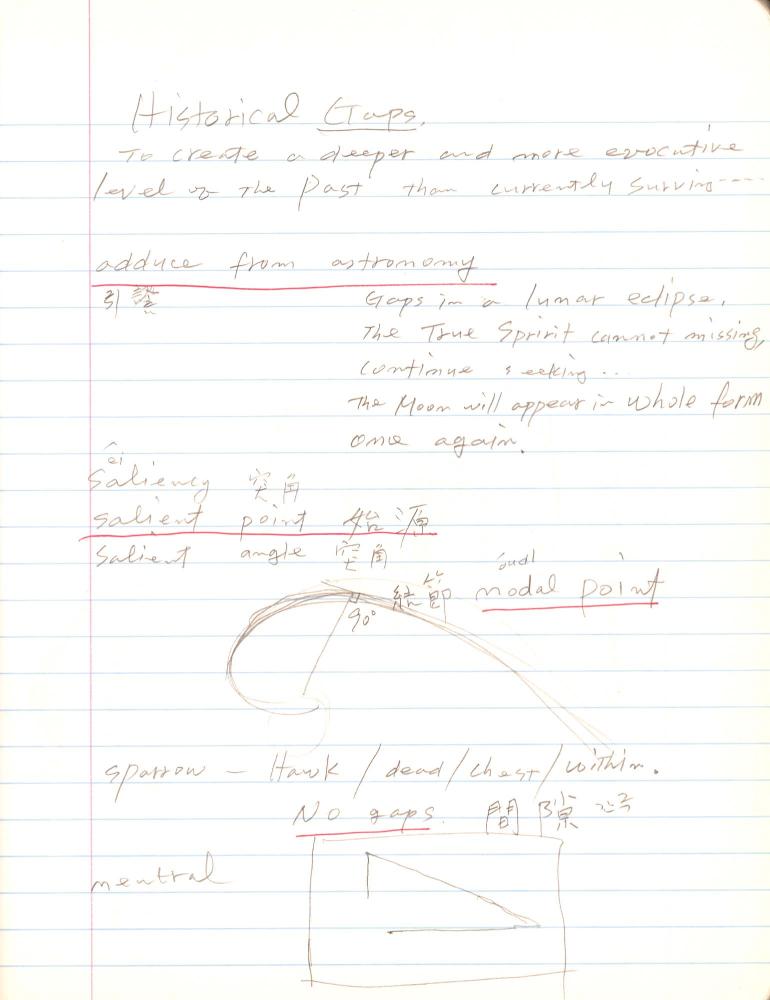 Historical Gaps.
To create a deeper and more evocutive
level of the Past than currently Surving----
adduce from astronomy
引發
Gaps in a lunar eclipse,
The True Spririt cannot missing,
continue seeking...
The Moon will appear in whole form
once again.
ei
Saliency 突角
salient point 始源
Salient angle 突角
結節 nodal point
90°
sparrow – Hawk / dead / chest / within.
No gaps. 間隙
neutral